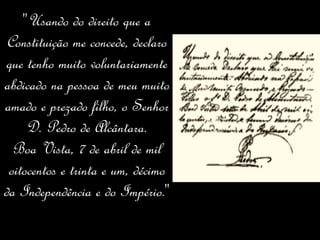 "Usando do direito que a
Constituição me concede, declaro
que tenho muito voluntariamente
abdicado na pessoa de meu muito
amado e prezado filho, o Senhor
D. Pedro de Alcântara.
Boa Vista, 7 de abril de mil
oitocentos e trinta e um, décimo
da Independência e do Império."
Usando do direito que a Constituição
me concede, declaro que hei mui vo-
luntariamente abdicado na pessoa
de meu muito amado e prezado
filho o Sr. D. Pedro de Alcantara
Boa Vista sete de Abril de mil oito
Pedro